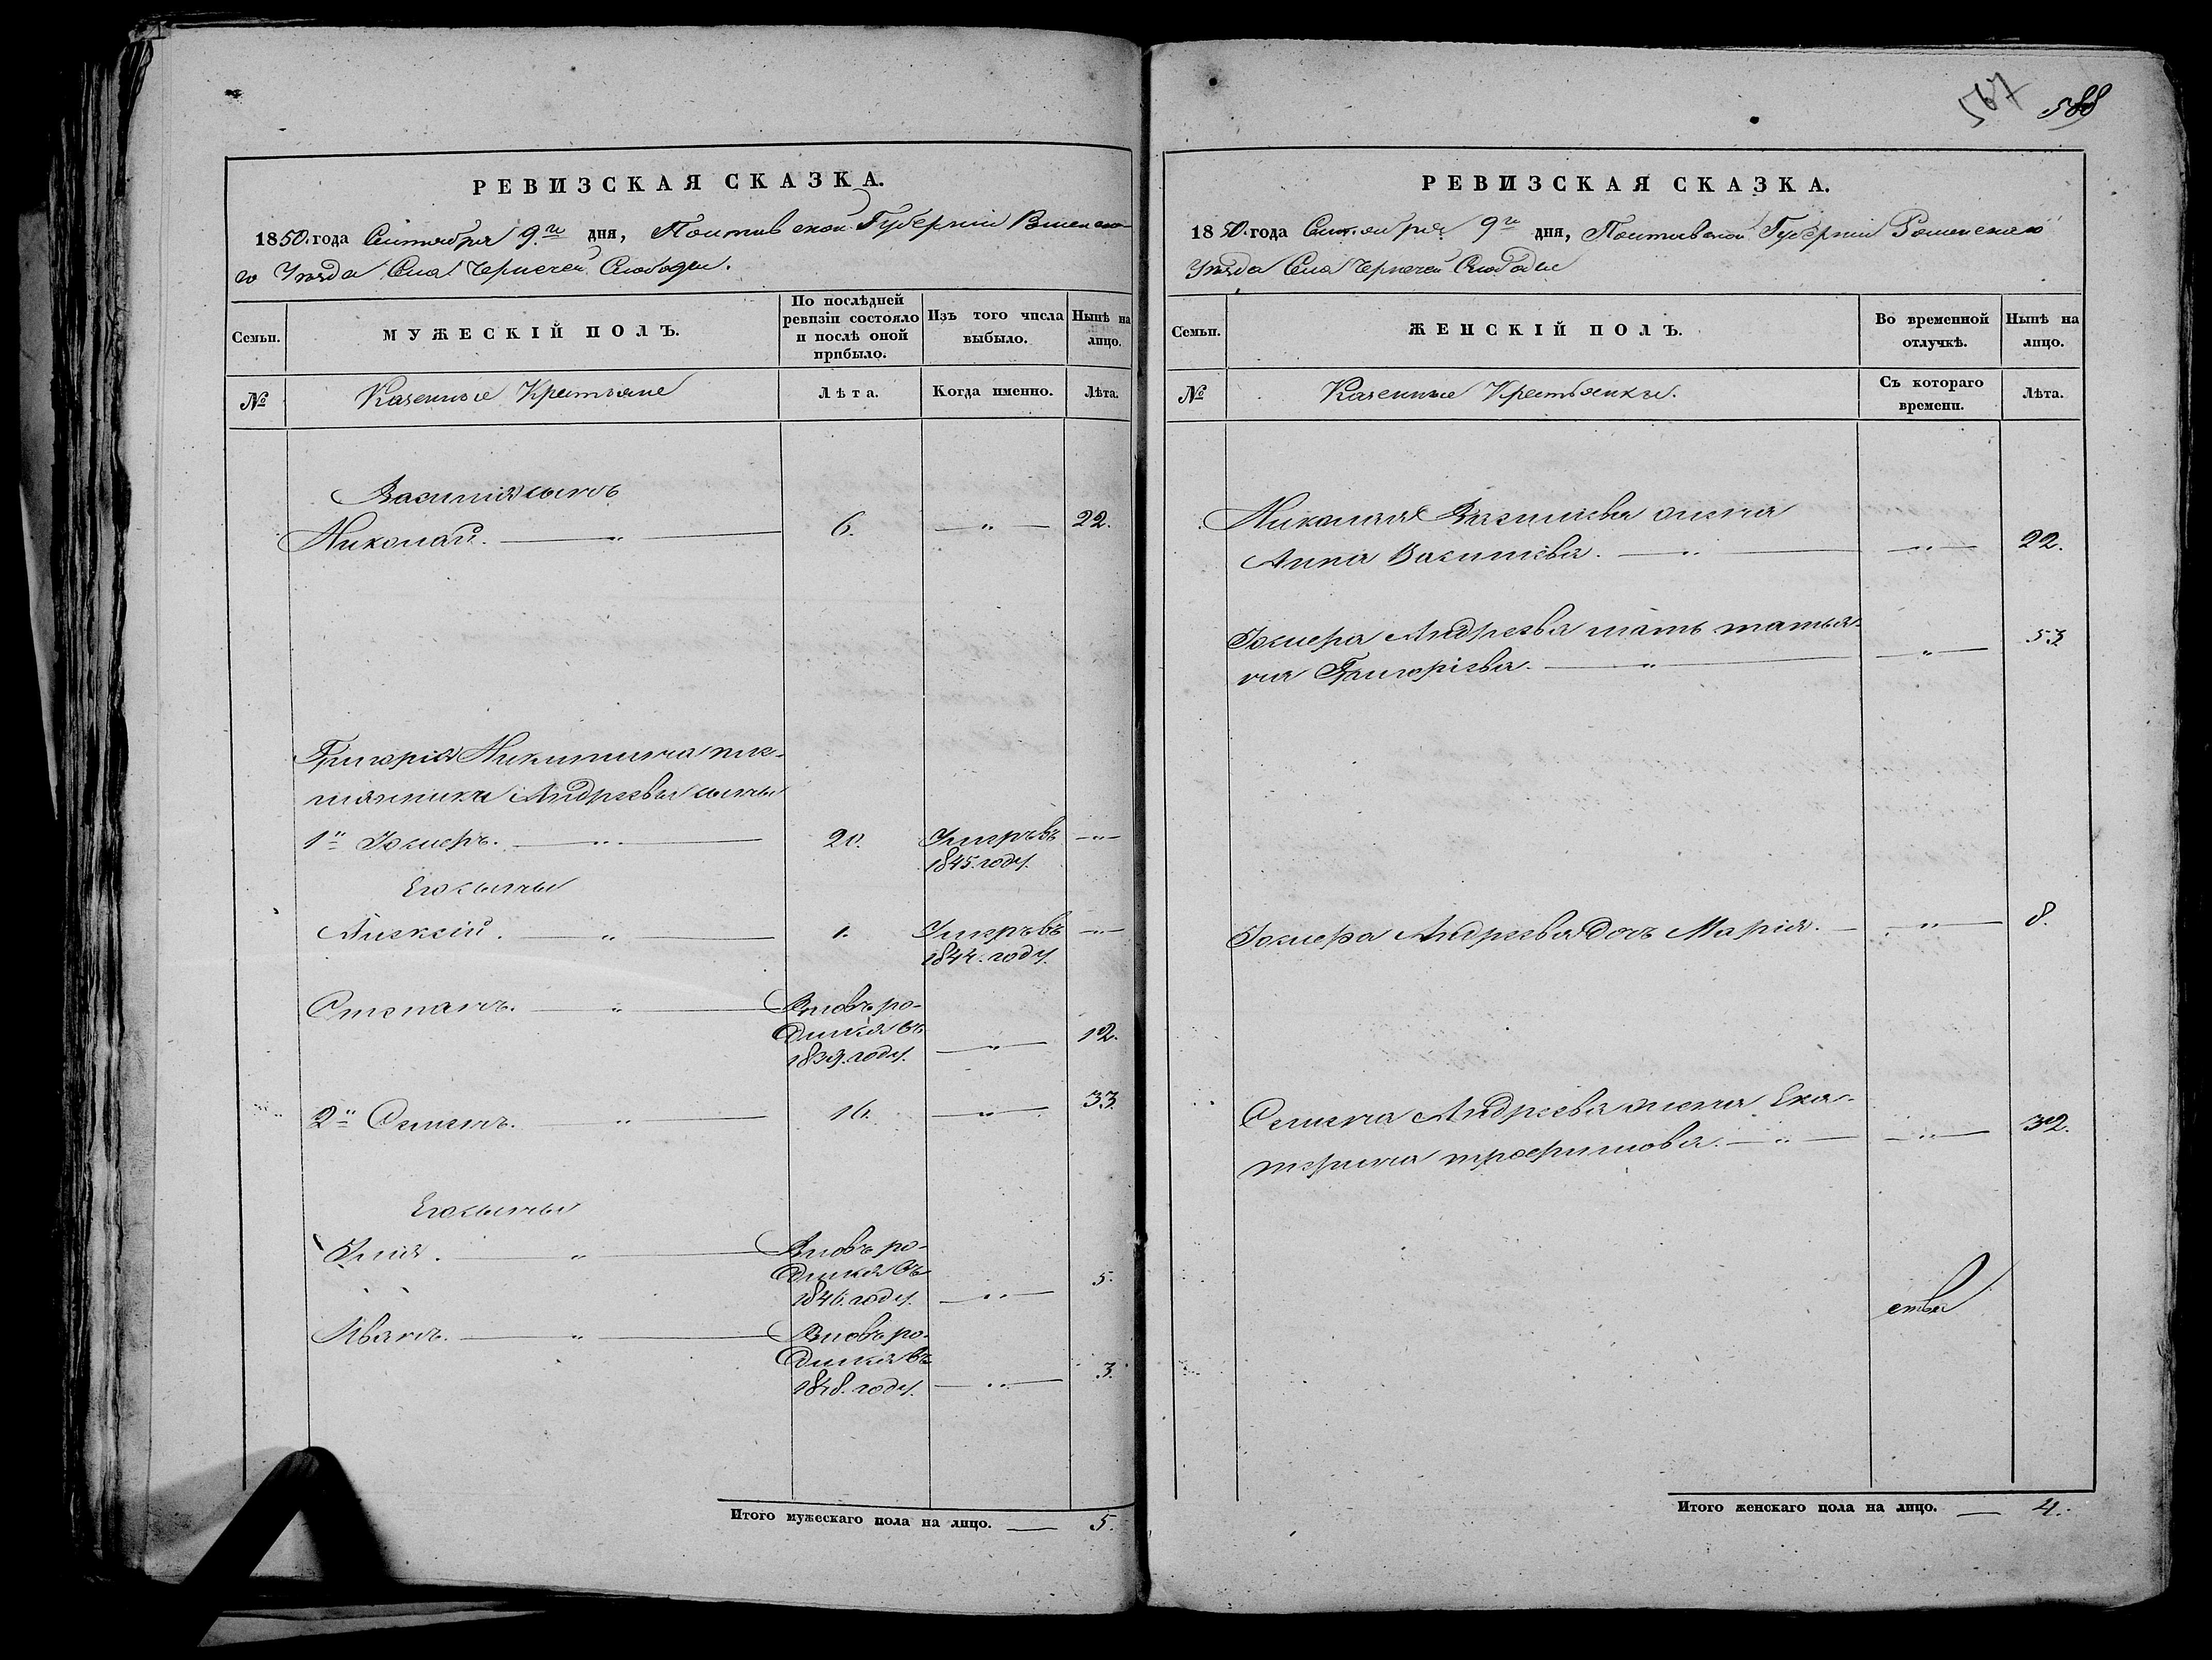 567 588
РЕВИЗСКАЯ СКАЗКА.
1850. года Сентября 9го дня, Полтавской Губернии Роменска-
го Уѣзда Села Чернечей Слободы.
Семьи.
МУЖЕСКІЙ ПОЛЪ.
По послѣдней ревизіи состояло и послѣ оной прибыло.
Изъ того числа выбыло.
Нынѣ на лицо.
№
Казенные Крестьяне
Лѣта.
Когда именно.
Лѣта.
Василія сынъ
Николай. — „ — 6. — „ — 22.
Григорія Никитина пле-
мянника Андрѣева сыны
1й — „ — 20. Умеръ въ — „ —
1845. году.
Его сыны
Алексій. — „ — 1. Умеръ въ — „ —
1844. году.
Степанъ. — „ — Вновь ро-
дился въ
1839. году. — „ — 12.
2й Семенъ. — „ — 16. — „ — 33.
Его сыны
Илія. — „ — Вновь ро-
дился въ
1846. году. — „ — 5.
Иванъ. — „ — Вновь ро-
дился въ
1848. году. — „ — 3.
Итого мужескаго пола на лицо. — 5.
РЕВИЗСКАЯ СКАЗКА.
1850. года Сентября 9го дня, Полтавской Губерніи Роменскаго
Уѣзда Села Чернечей Слободы
Семьи.
ЖЕНСКІЙ ПОЛЪ.
Во временной отлучкѣ.
Нынѣ на лицо.
№
Казенные Крестьянки.
Съ котораго времени.
Лѣта.
Николая Васильева жена
Анна Васильева. — „ — — „ — 22.
Андреева мать Татья-
на Григоріева. — „ — — „ — 53
Андреева дочь Марія. — — „ — 8.
Семена Андреева жена Ека-
терина Трофимова. — „ — — „ — 32.
ства
Итого женскаго пола на лицо. — 4.